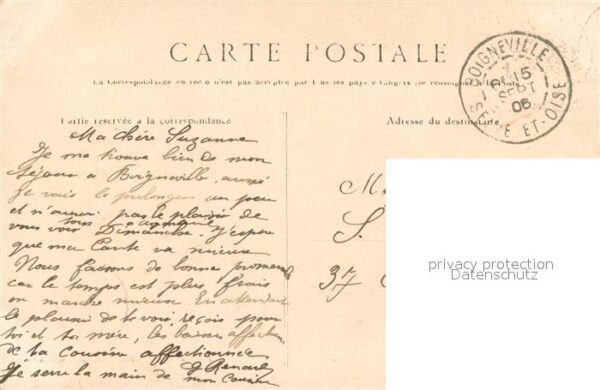 CARTE POSTALE
La Correspondance au recto n'est pas acceptée par tous les pays étrangers (Se renseigner à la Poste)
BOIGNEVILLE
15
SEPT
06
SEINE ET-OISE
Partie réservée à la correspondance
Adresse du destinataire
Ma chère Suzanne
Je me trouve bien de mon
séjour à Boigneville, aussi
je vais le prolonger un peu
et n'aurai pas le plaisir de
vous voir Dimanche. J'espère
que ma Tante va mieux
Nous faisons de bonne promenade
car le temps est plus frais
on marche mieux. En attendant
le plaisir de te voir, reçois pour
toi et ta mère, les baisers affectueux
de ta cousine affectionnée
J Renard
Je serre la main de mon cousin
M
S
37
privacy protection
Datenschutz